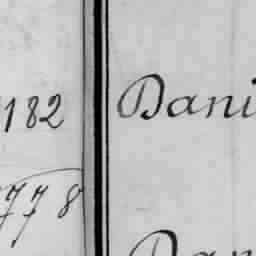 182 Dani
778